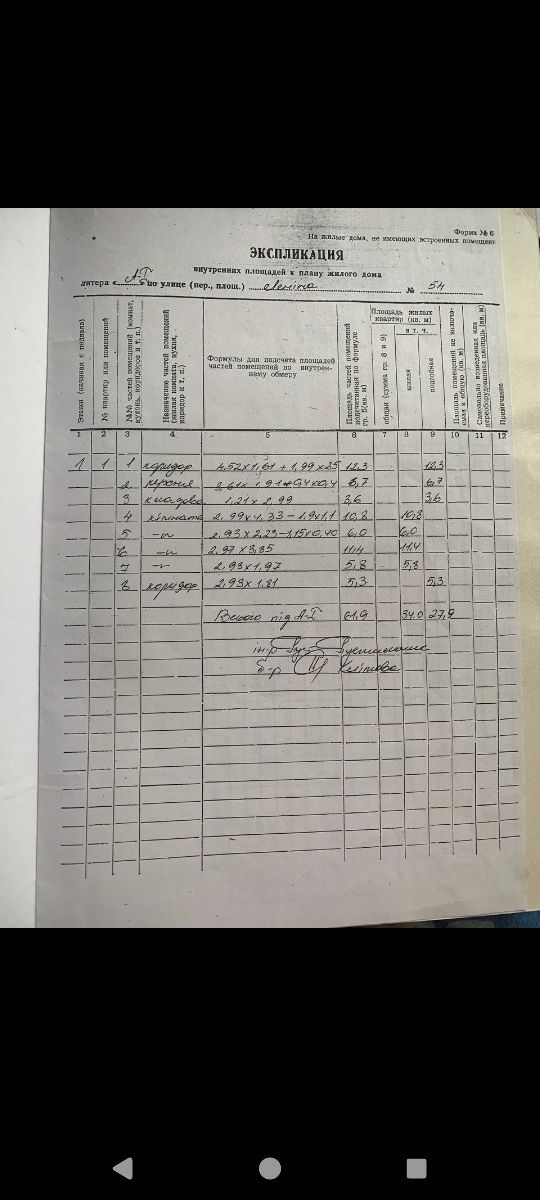 Форма № 6
На жилые дома, не имеющих встроенных помещени
ЭКСПЛИКАЦИЯ
внутренних площадей к плану жилого дома
литера « А-I » по улице (пер., площ.) № 54
Этажи (начиная с подвала)
№ квартир или помещений
№№ частей помещений (комнат, кухонь, коридоров и т. п.)
Назначение частей помещений (жилая комната, кухня, коридор и т. п.)
Формулы для подсчета площадей частей помещений по внутреннему обмеру
Площадь частей помещений подсчитанная по формуле гр. 5 (кв. м)
Площадь жилых квартир (кв. м)
общая (сумма гр. 8 и 9)
в т. ч.
жилая
подсобная
Площадь помещений не включаемая в общую (кв. м)
Самовольно возведенная или переоборудованная площадь (кв. м)
Примечание
1 2 3 4 5 6 7 8 9 10 11 12
1 1 1 коридор 4,52×1,61 + 1,99×2,5 12,3 12,3
2 кухня 6,7 6,7
3 кладова 1,21×2,99 3,6 3,6
4 кімната 2,99×4,33-1,9×1,1 10,8 10,8
5 -"- 2,93×2,23-1,15×0,40 6,0 6,0
6 -"- 2,97×3,85 11,4 11,4
7 -"- 2,93×1,97 5,8 5,8
8 коридор 2,93×1,81 5,3 5,3
Всього під А-I 61,9 34,0 27,9
ін-р
б-р